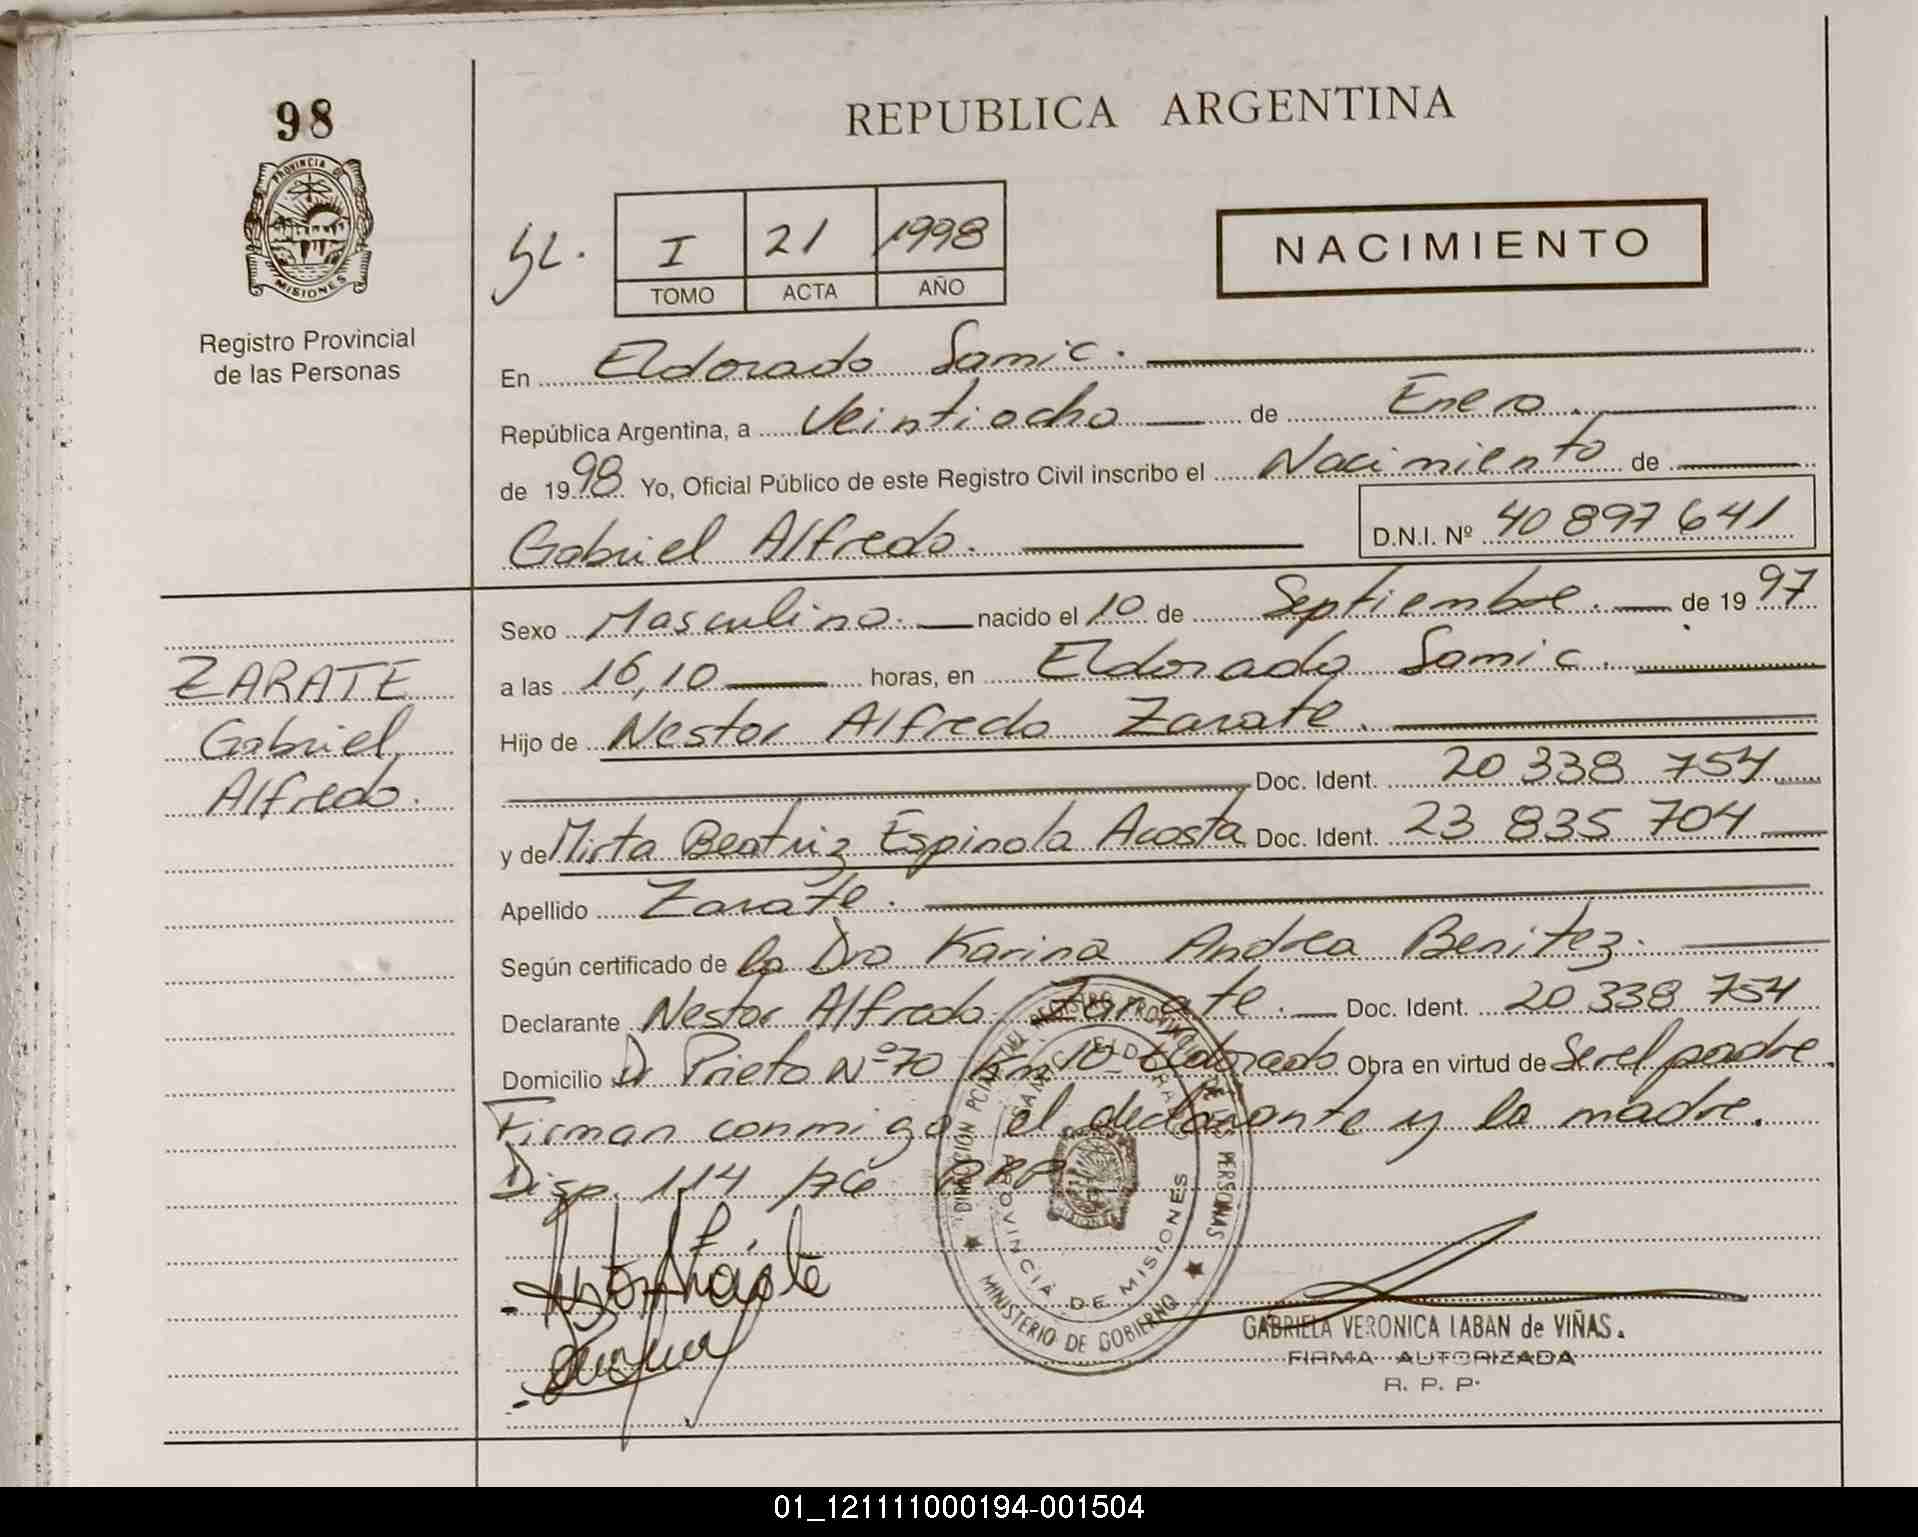 98
REPUBLICA ARGENTINA
PROVINCIA DE MISIONES
Registro Provincial
de las Personas
I 21 1998
TOMO ACTA AÑO
NACIMIENTO
En Eldorado Samic.
República Argentina, a Veintiocho de Enero.
de 1998 Yo, Oficial Público de este Registro Civil inscribo el Nacimiento de
Gabriel Alfredo. D.N.I. Nº 40 897 641
ZARATE
Gabriel
Alfredo.
Sexo Masculino. nacido el 10 de Septiembre. de 1997
a las 16,10 horas, en Eldorado Samic.
Hijo de Nestor Alfredo Zarate.
Doc. Ident. 20 338 754
y de Mirta Beatriz Espinola Acosta Doc. Ident. 23 835 704
Apellido Zarate.
Según certificado de la Dra Karina Andrea Benitez.
Declarante Nestor Alfredo Zarate. Doc. Ident. 20 338 754
Domicilio Dr Prieto Nº 70 Km 10 Eldorado Obra en virtud de Ser el padre.
Firman conmigo el declarante y la madre.
Disp. 114 /76 RPP
PROVINCIA DE MISIONES
MINISTERIO DE GOBIERNO
GABRIELA VERONICA LABAN de VIÑAS.
FIRMA AUTORIZADA
R. P. P.
01_121111000194-001504